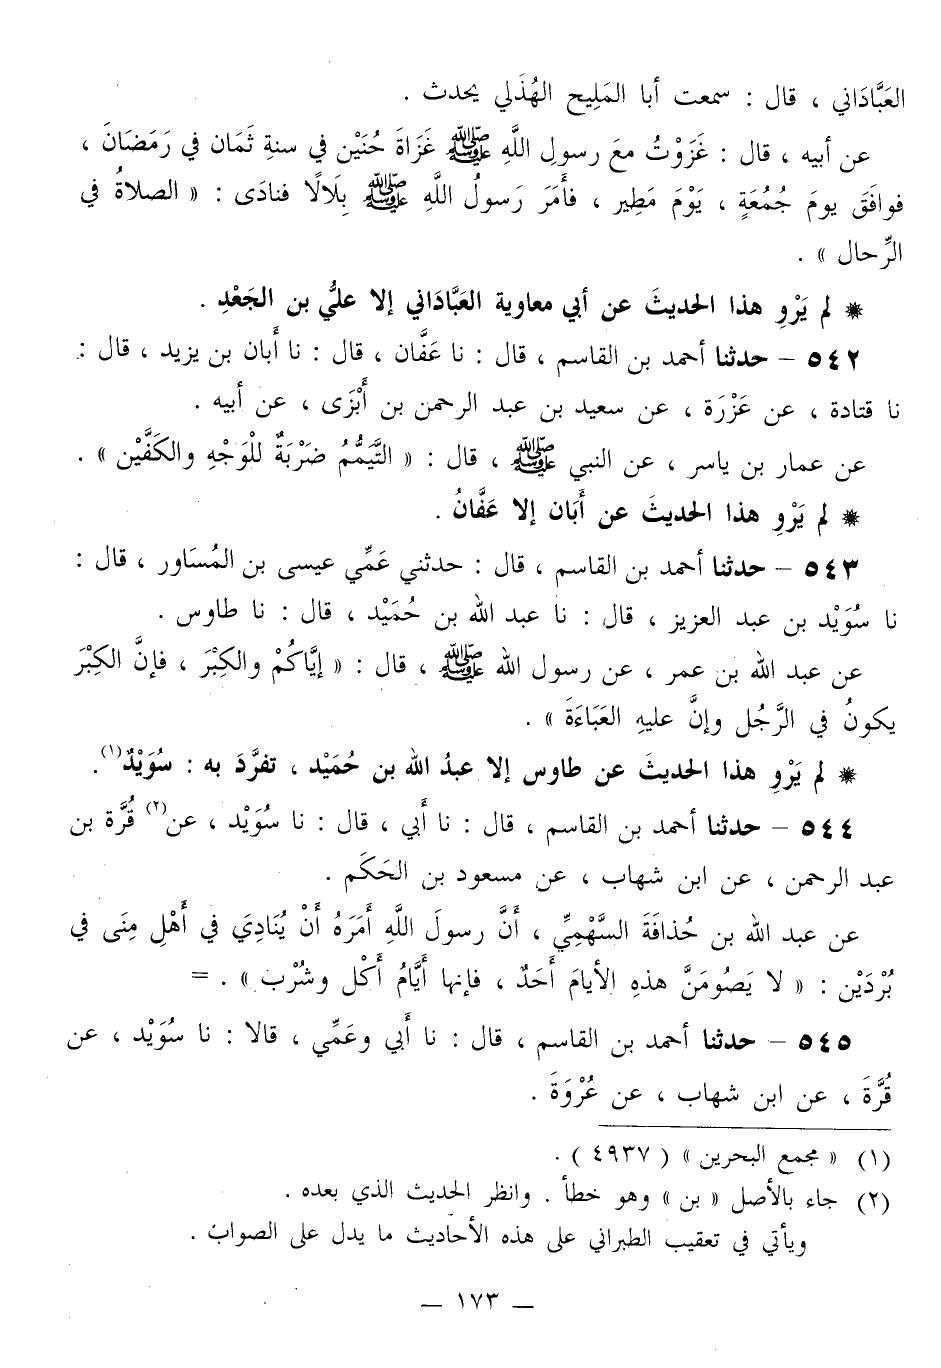 العَبَّادَاني ، قال : سمعت أبا المَلِيح الهُذَلي يحدث .
عن أبيه ، قال : غَزَوْتُ معَ رسولِ اللَّهِ ﷺ غَزَاةَ حُنَيْن في سنةِ ثَمَان في رَمَضَانَ ،
فوافَقَ يومَ جُمُعَةٍ ، يَوْمَ مَطِير ، فأَمَرَ رَسولُ اللَّهِ ﷺ بِلَالًا فنادَى : « الصلاةُ في
الرِّحال » .
* لم يَرْوِ هذا الحديثَ عن أبي معاوية العَبَّادَاني إلا عليُّ بن الجَعْدِ .
٥٤٢ – حدثنا أحمد بن القاسم ، قال : نا عَفَّان ، قال : نا أَبان بن يزيد ، قال :
نا قتادة ، عن عَزْرَة ، عن سعيد بن عبد الرحمن بن أَبْزَى ، عن أبيه .
عن عمار بن ياسر ، عن النبي ﷺ ، قال : « التَّيَمُّمُ ضَرْبَةٌ للْوَجْهِ والكَفَّيْن » .
* لم يَرْوِ هذا الحديثَ عن أَبَان إلا عَفَّانُ .
٥٤٣ – حدثنا أحمد بن القاسم ، قال : حدثني عَمِّي عيسى بن المُسَاور ، قال :
نا سُوَيْد بن عبد العزيز ، قال : نا عبد الله بن حُمَيْد ، قال : نا طاوس .
عن عبد الله بن عمر ، عن رسول الله ﷺ ، قال : « إيَّاكُمْ والكِبْرَ ، فإنَّ الكِبْرَ
يكونُ في الرَّجُل وإنَّ عليهِ العَبَاءَةَ » .
* لم يَرْوِ هذا الحديثَ عن طاوس إلا عبدُ الله بن حُمَيْد ، تفرَّدَ به : سُوَيْدٌ(١).
٥٤٤ – حدثنا أحمد بن القاسم ، قال : نا أَبي ، قال : نا سُوَيْد ، عن(٢) قُرَّة بن
عبد الرحمن ، عن ابن شهاب ، عن مسعود بن الحَكَم .
عن عبد الله بن حُذافَةَ السَّهْمِيِّ ، أَنَّ رسولَ اللَّهِ أَمَرَهُ أَنْ يُنَادِيَ في أَهْلِ مِنَى في
بُرْدَيْن : « لا يَصُومَنَّ هذهِ الأيامَ أَحَدٌ ، فإنها أَيَّامُ أَكْل وشُرْب » . =
٥٤٥ – حدثنا أحمد بن القاسم ، قال : نا أَبي وعَمِّي ، قالا : نا سُوَيْد ، عن
قُرَّةَ ، عن ابن شهاب ، عن عُرْوَةَ .
(١) « مجمع البحرين » ( ٤٩٣٧ ) .
(٢) جاء بالأصل « بن » وهو خطأ . وانظر الحديث الذي بعده .
ويأتي في تعقيب الطبراني على هذه الأحاديث ما يدل على الصواب .
– ١٧٣ –